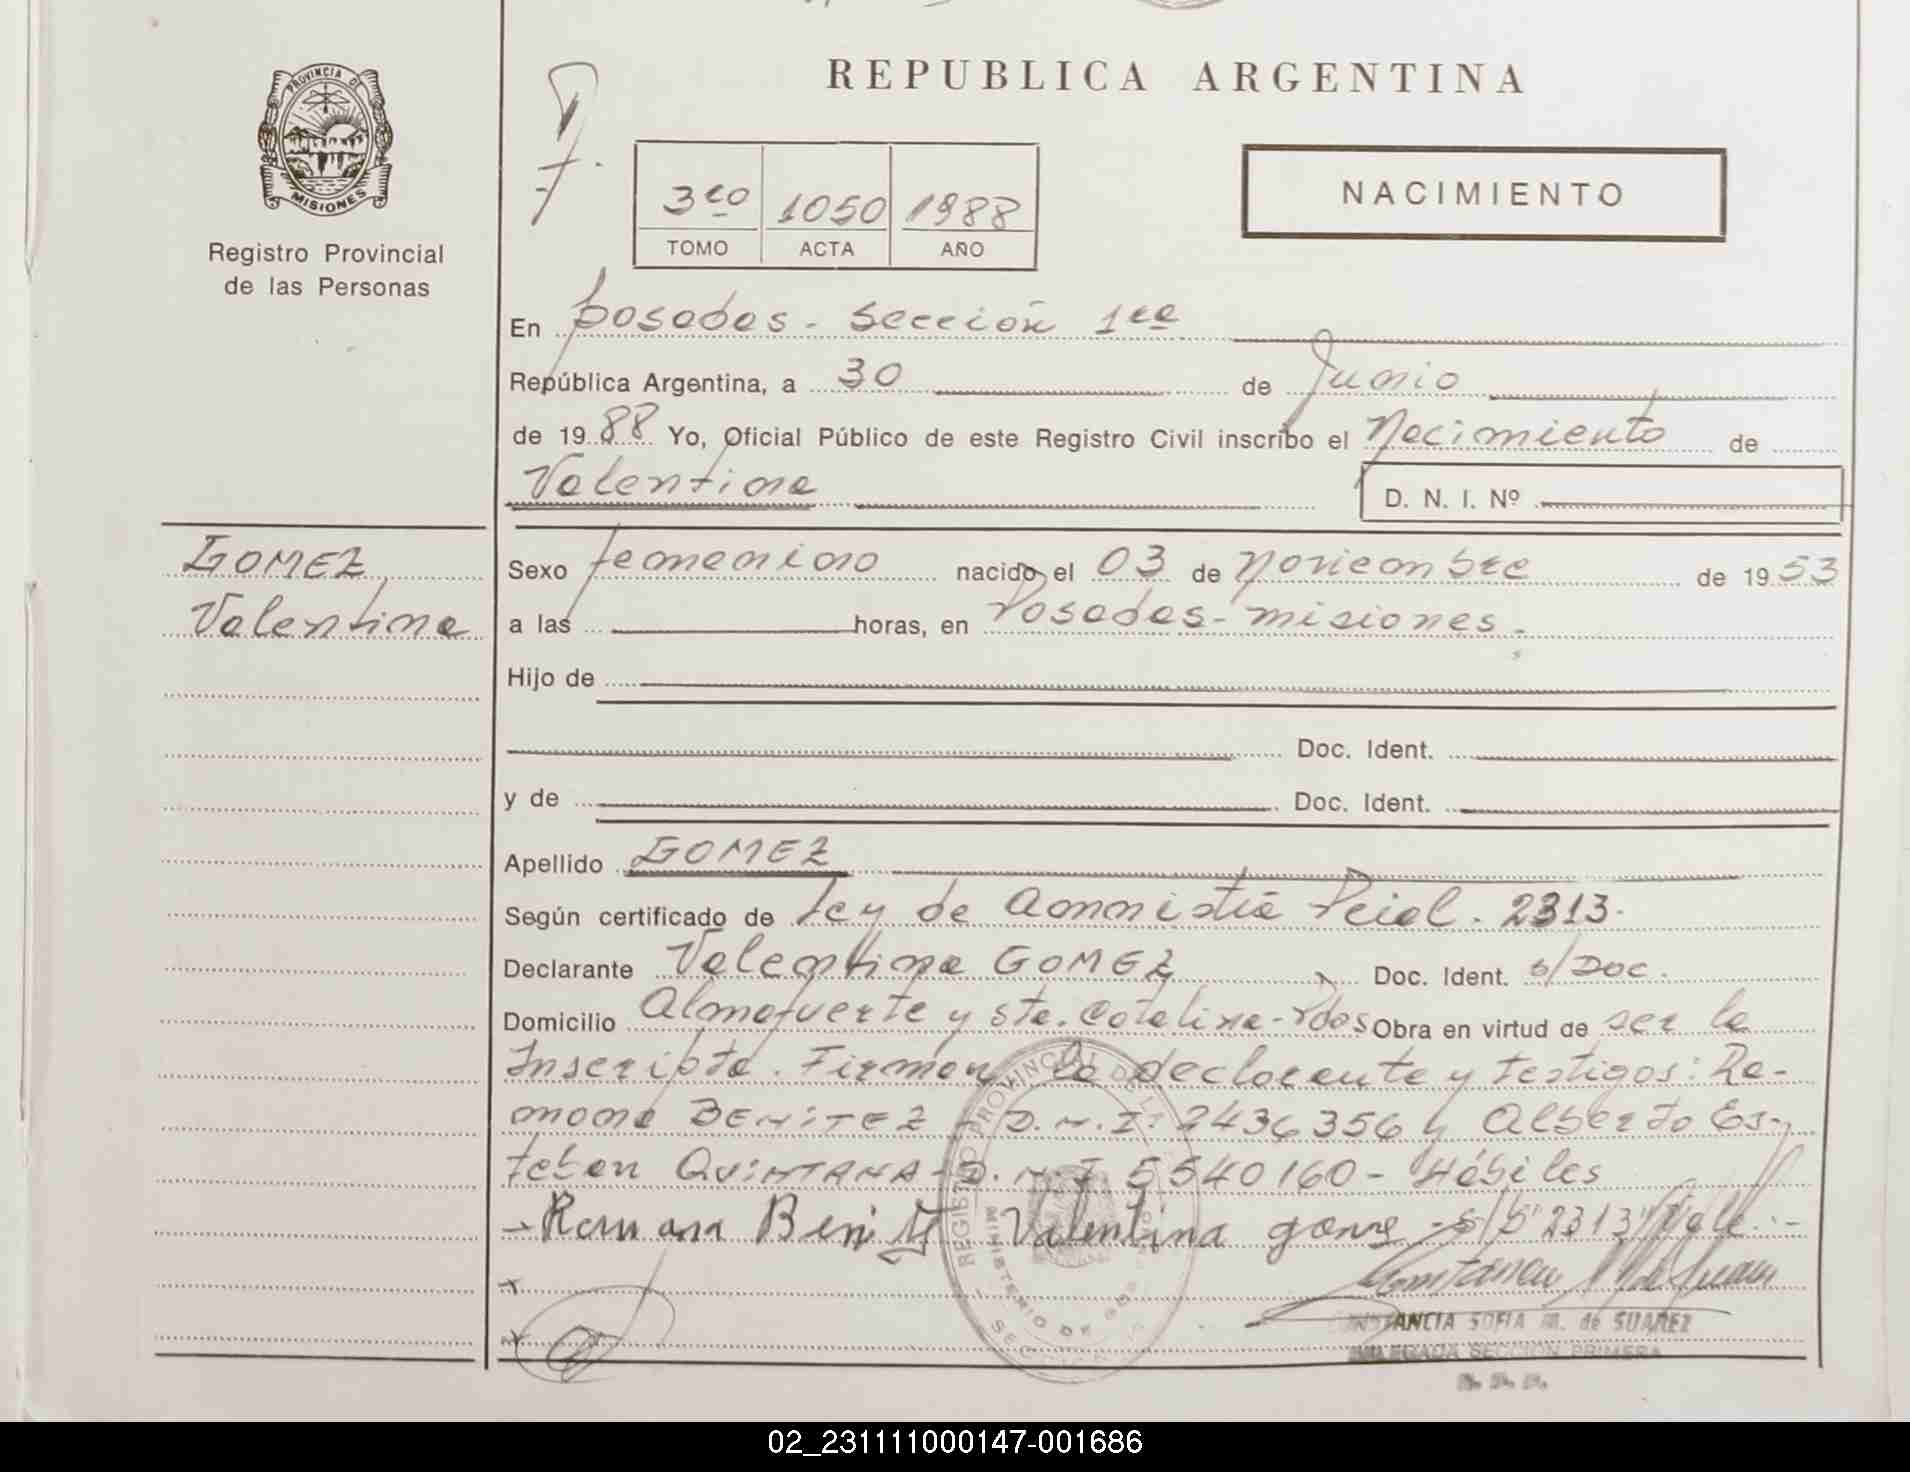 PROVINCIA DE
MISIONES
Registro Provincial
de las Personas
REPUBLICA ARGENTINA
3ro 1050 1988
TOMO ACTA AÑO
NACIMIENTO
En Posadas - Sección 1ra
República Argentina, a 30 de Junio
de 1988 Yo, Oficial Público de este Registro Civil inscribo el Nacimiento de
Valentina D. N. I. Nº
GOMEZ
Valentina
Sexo femenino nacido el 03 de Noviembre de 1953
a las horas, en Posadas - misiones.
Hijo de
Doc. Ident.
y de Doc. Ident.
Apellido GOMEZ
Según certificado de Ley de Amnistia Pcial. 2313.
Declarante Valentina GOMEZ Doc. Ident. s/Doc.
Domicilio Almafuerte y Sta. Catalina - Pdas Obra en virtud de ser la
Inscripta. Firman la declarante y testigos: Ra-
mona BENITEZ - D.N.I: 2436356 y Alberto Es-
teban QUINTANA - D.N.I 5540160 - Hábiles
- Ramona Benitez Valentina gomez - s/b "2313" Vale. -
CONSTANCIA SOFIA M. de SUAREZ
DELEGADA SECCION PRIMERA
02_231111000147-001686